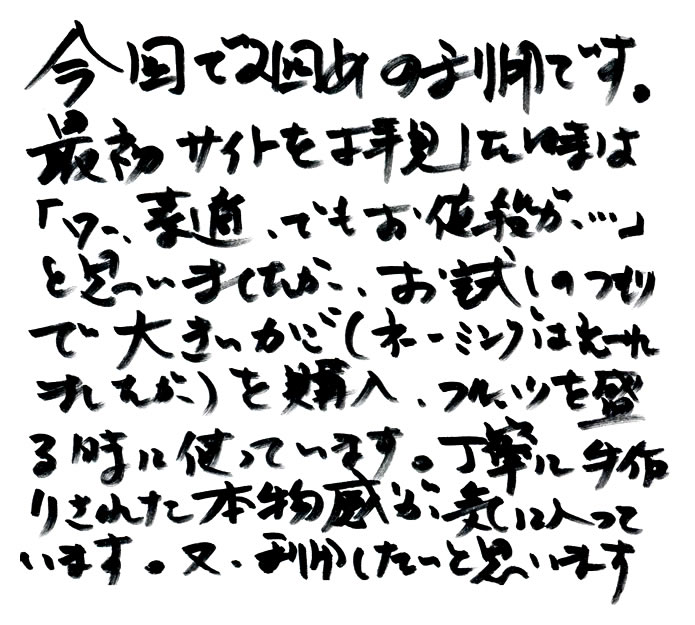 今回で2回めの利用です。
最初サイトを拝見した時は
「ワー、素適、でもお値段が、…」
と思いましたが、お試しのつもり
で大きいかご(ネーミングは忘れ
ましたが)を購入、フルーツを盛
る時に使っています。丁寧に手作
りされた本物感が気に入って
います。又、利用したいと思います